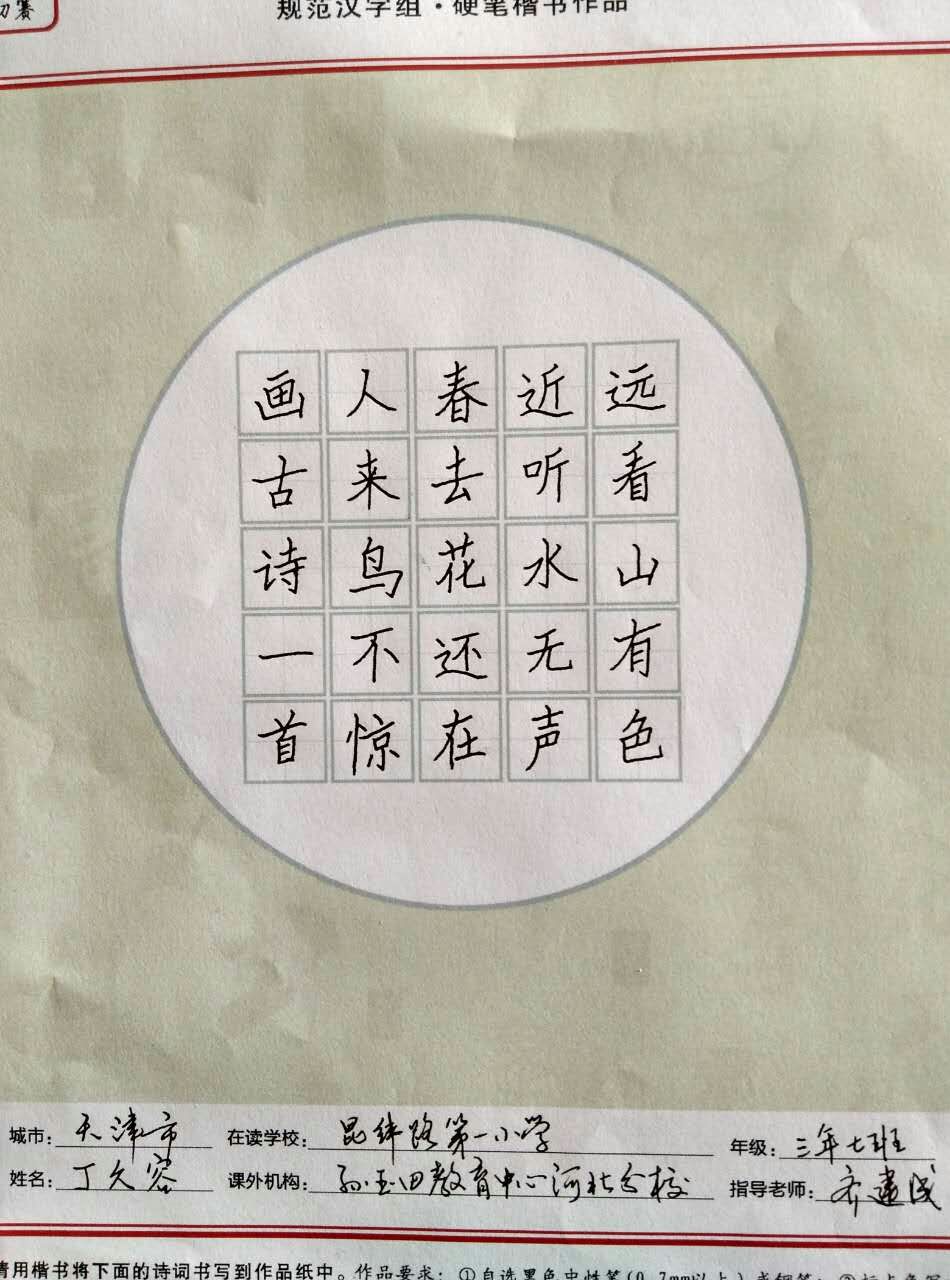 初赛
规范汉字组·硬笔楷书作品
远看山有色
近听水无声
春去花还在
人来鸟不惊
画古诗一首
城市：天津市
在读学校：昆纬路第一小学
年级：三年七班
姓名：丁久容
课外机构：孙玉田教育中心河北分校
指导老师：齐建民
请用楷书将下面的诗词书写到作品纸中。作品要求：①自选黑色中性笔(0.7mm以上)或钢笔